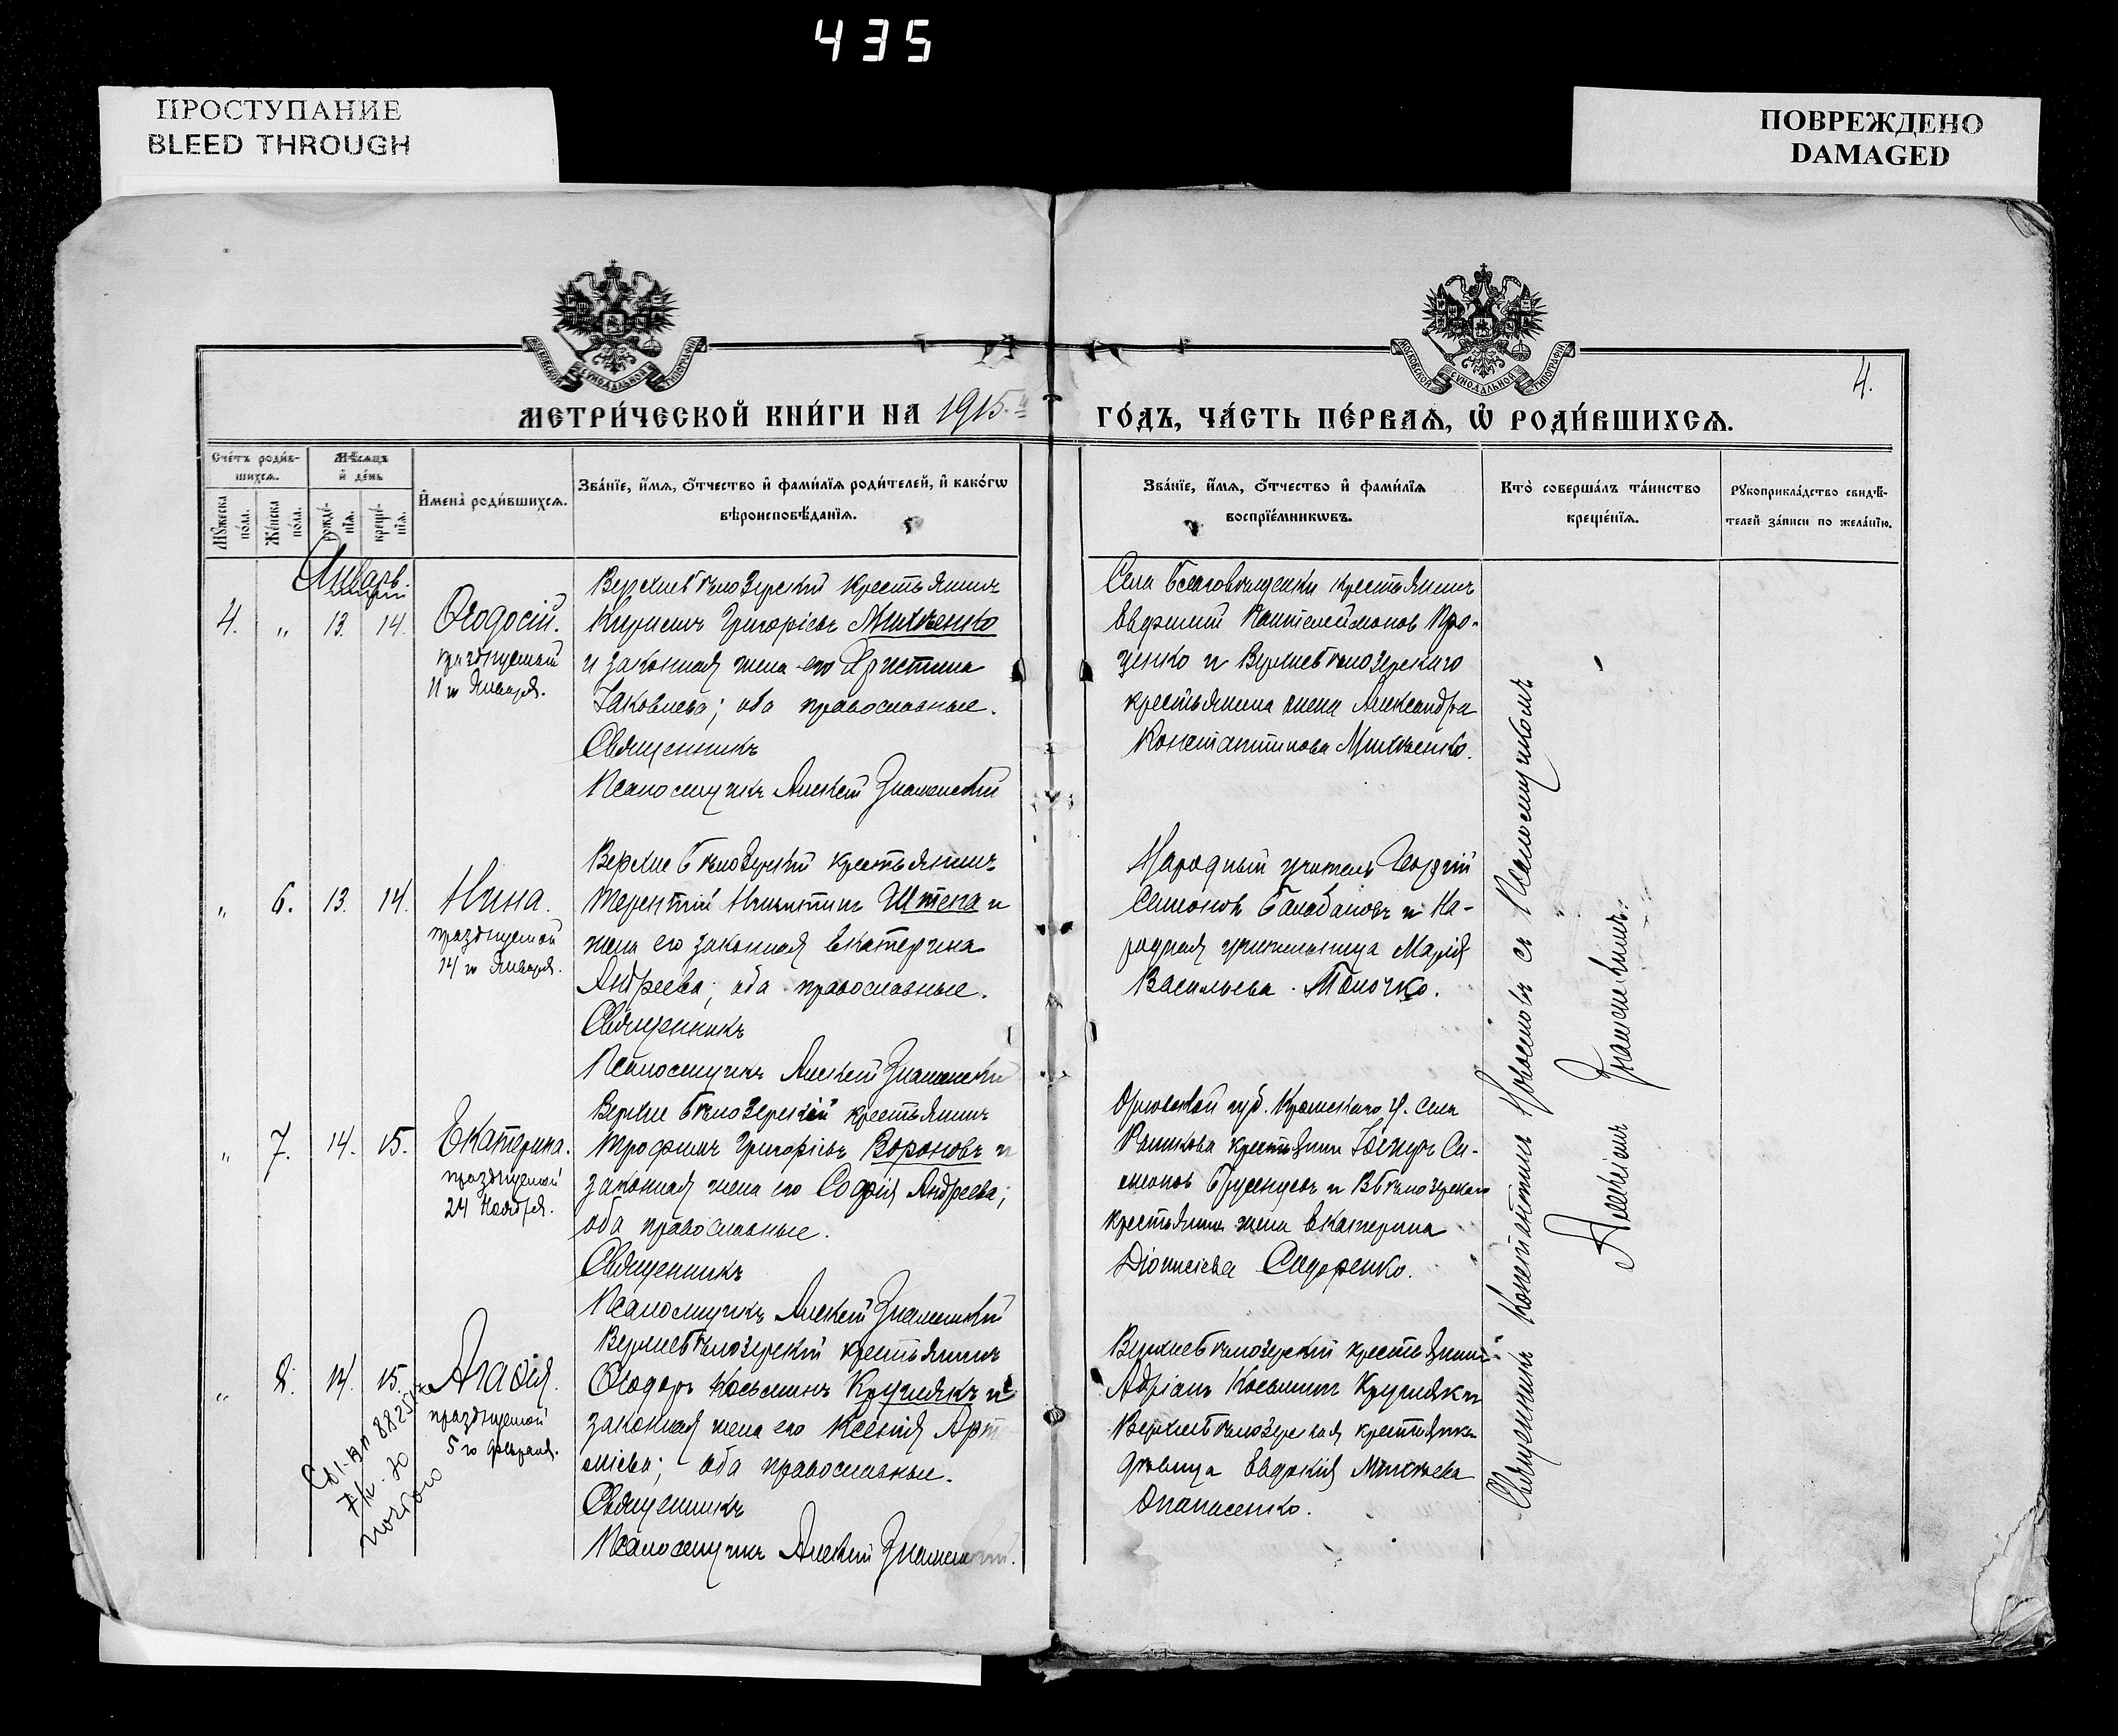 435
ПРОСТУПАНИЕ
BLEED THROUGH
ПОВРЕЖДЕНО
DAMAGED
МОСКОВСКОЙ СѴНОДАЛЬНОЙ ТИПОГРАФІИ
МОСКОВСКОЙ СѴНОДАЛЬНОЙ ТИПОГРАФІИ
4.
МЕТРИ́ЧЕСКОЙ КНИ́ГИ НА 1915.
ГО́ДЪ, ЧА́СТЬ ПЕ́РВАѦ, Ѽ РОДИ́ВШИХСѦ.
Сче́тъ роди́в-
шихсѧ.
Мꙋ́жеска пола.
Же́нска по́ла.
Мѣ́сѧцъ
и҆ де́нь
рожде́-
нїѧ.
креще́-
нїѧ.
И҆мена̀ роди́вшихсѧ.
Зва́нїе, и҆́мѧ, ѻ҆́тчество и҆ фами́лїѧ роди́телей, и҆ како́гѡ
вѣроисповѣ́данїѧ.
Зва́нїе, и҆́мѧ, ѻ҆́тчество и҆ фами́лїѧ
воспрїе́мникѡвъ.
Кто̀ соверша́лъ та́инство
креще́нїѧ.
Рꙋкоприкла́дство свидѣ́-
телей за́писи по жела́нїю.
Январь.
4. „ 13. 14.
Ѳеодосій.
празднуемый
11 го Января.
Верхнебѣлозерскій крестьянинъ
Кириллъ Григоріевъ Михѣенко
и законная жена его Христина
Іаковлева; оба православные.
Священникъ
Псаломщикъ Алексій Знаменскій
Села Благовѣщенки крестьянинъ
Евфимій Пантелеймоновъ Про-
ценко и Верхнебѣлозерскаго
крестьянина жена Александра
Константинова Михѣенко.
„ 6. 13. 14.
Нина.
празднуемой
14 го Января.
Верхнебѣлозерскій крестьянинъ
Терентій Никитинъ Штепа и
жена его законная Екатерина
Андреева; оба православные.
Священникъ
Псаломщикъ Алексій Знаменскій
Народный учитель Георгій
Симоновъ Балабановъ и На-
родная учительница Марія
Васильева Толочко.
„ 7. 14. 15.
Екатерина.
празднуемой
24 Ноября.
Верхнебѣлозерскій крестьянинъ
Трофимъ Григорьевъ Вороновъ и
законная жена его Софія Андреева;
оба православные.
Священникъ
Псаломщикъ Алексій Знаменскій
Орловской губ. Кромскаго у. села
крестьянинъ Си-
моновъ и Вбѣлозерскаго
крестьянина жена Екатерина
Діонисіева Сидоренко.
„ 8. 14. 15.
Агафія.
празднуемой
5 го февраля.
Верхнебѣлозерскій крестьянинъ
Ѳеодоръ Косьминъ Круглякъ и
законная жена его Ксенія Арте-
міева; оба православные.
Священникъ
Псаломщикъ Алексій Знаменскій.
Верхнебѣлозерскій крестьянинъ
Адріанъ Косьминъ Круглякъ и
Верхнебѣлозерская крестьянка
дѣвица Евдокія Михѣева
Опанасенко.
Священникъ Константинъ съ Псаломщикомъ
Алексіемъ Знаменскимъ.